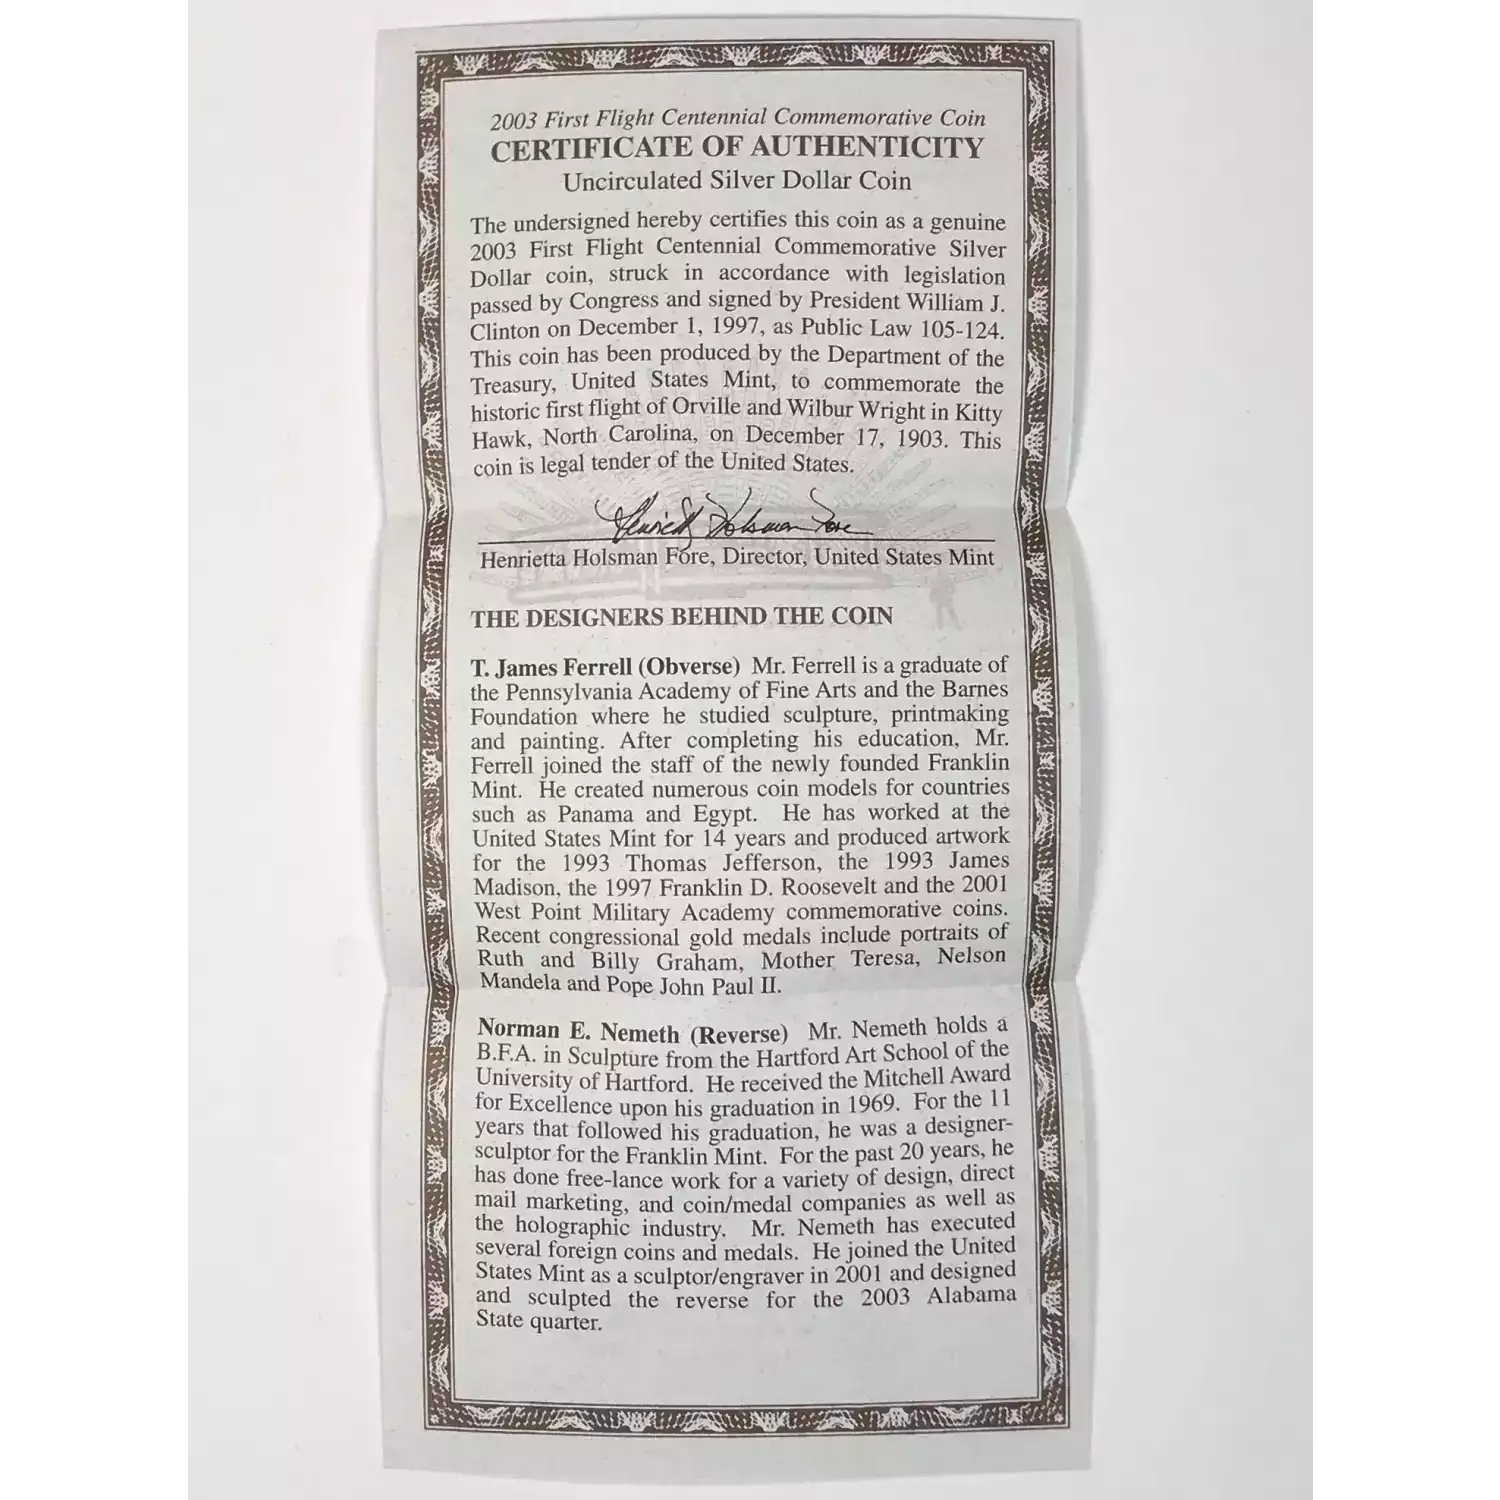 2003 First Flight Centennial Commemorative Coin
CERTIFICATE OF AUTHENTICITY
Uncirculated Silver Dollar Coin
The undersigned hereby certifies this coin as a genuine
2003 First Flight Centennial Commemorative Silver
Dollar coin, struck in accordance with legislation
passed by Congress and signed by President William J.
Clinton on December 1, 1997, as Public Law 105-124.
This coin has been produced by the Department of the
Treasury, United States Mint, to commemorate the
historic first flight of Orville and Wilbur Wright in Kitty
Hawk, North Carolina, on December 17, 1903. This
coin is legal tender of the United States.
Henrietta Holsman Fore
Henrietta Holsman Fore, Director, United States Mint
THE DESIGNERS BEHIND THE COIN
T. James Ferrell (Obverse) Mr. Ferrell is a graduate of
the Pennsylvania Academy of Fine Arts and the Barnes
Foundation where he studied sculpture, printmaking
and painting. After completing his education, Mr.
Ferrell joined the staff of the newly founded Franklin
Mint. He created numerous coin models for countries
such as Panama and Egypt. He has worked at the
United States Mint for 14 years and produced artwork
for the 1993 Thomas Jefferson, the 1993 James
Madison, the 1997 Franklin D. Roosevelt and the 2001
West Point Military Academy commemorative coins.
Recent congressional gold medals include portraits of
Ruth and Billy Graham, Mother Teresa, Nelson
Mandela and Pope John Paul II.
Norman E. Nemeth (Reverse) Mr. Nemeth holds a
B.F.A. in Sculpture from the Hartford Art School of the
University of Hartford. He received the Mitchell Award
for Excellence upon his graduation in 1969. For the 11
years that followed his graduation, he was a designer-
sculptor for the Franklin Mint. For the past 20 years, he
has done free-lance work for a variety of design, direct
mail marketing, and coin/medal companies as well as
the holographic industry. Mr. Nemeth has executed
several foreign coins and medals. He joined the United
States Mint as a sculptor/engraver in 2001 and designed
and sculpted the reverse for the 2003 Alabama
State quarter.